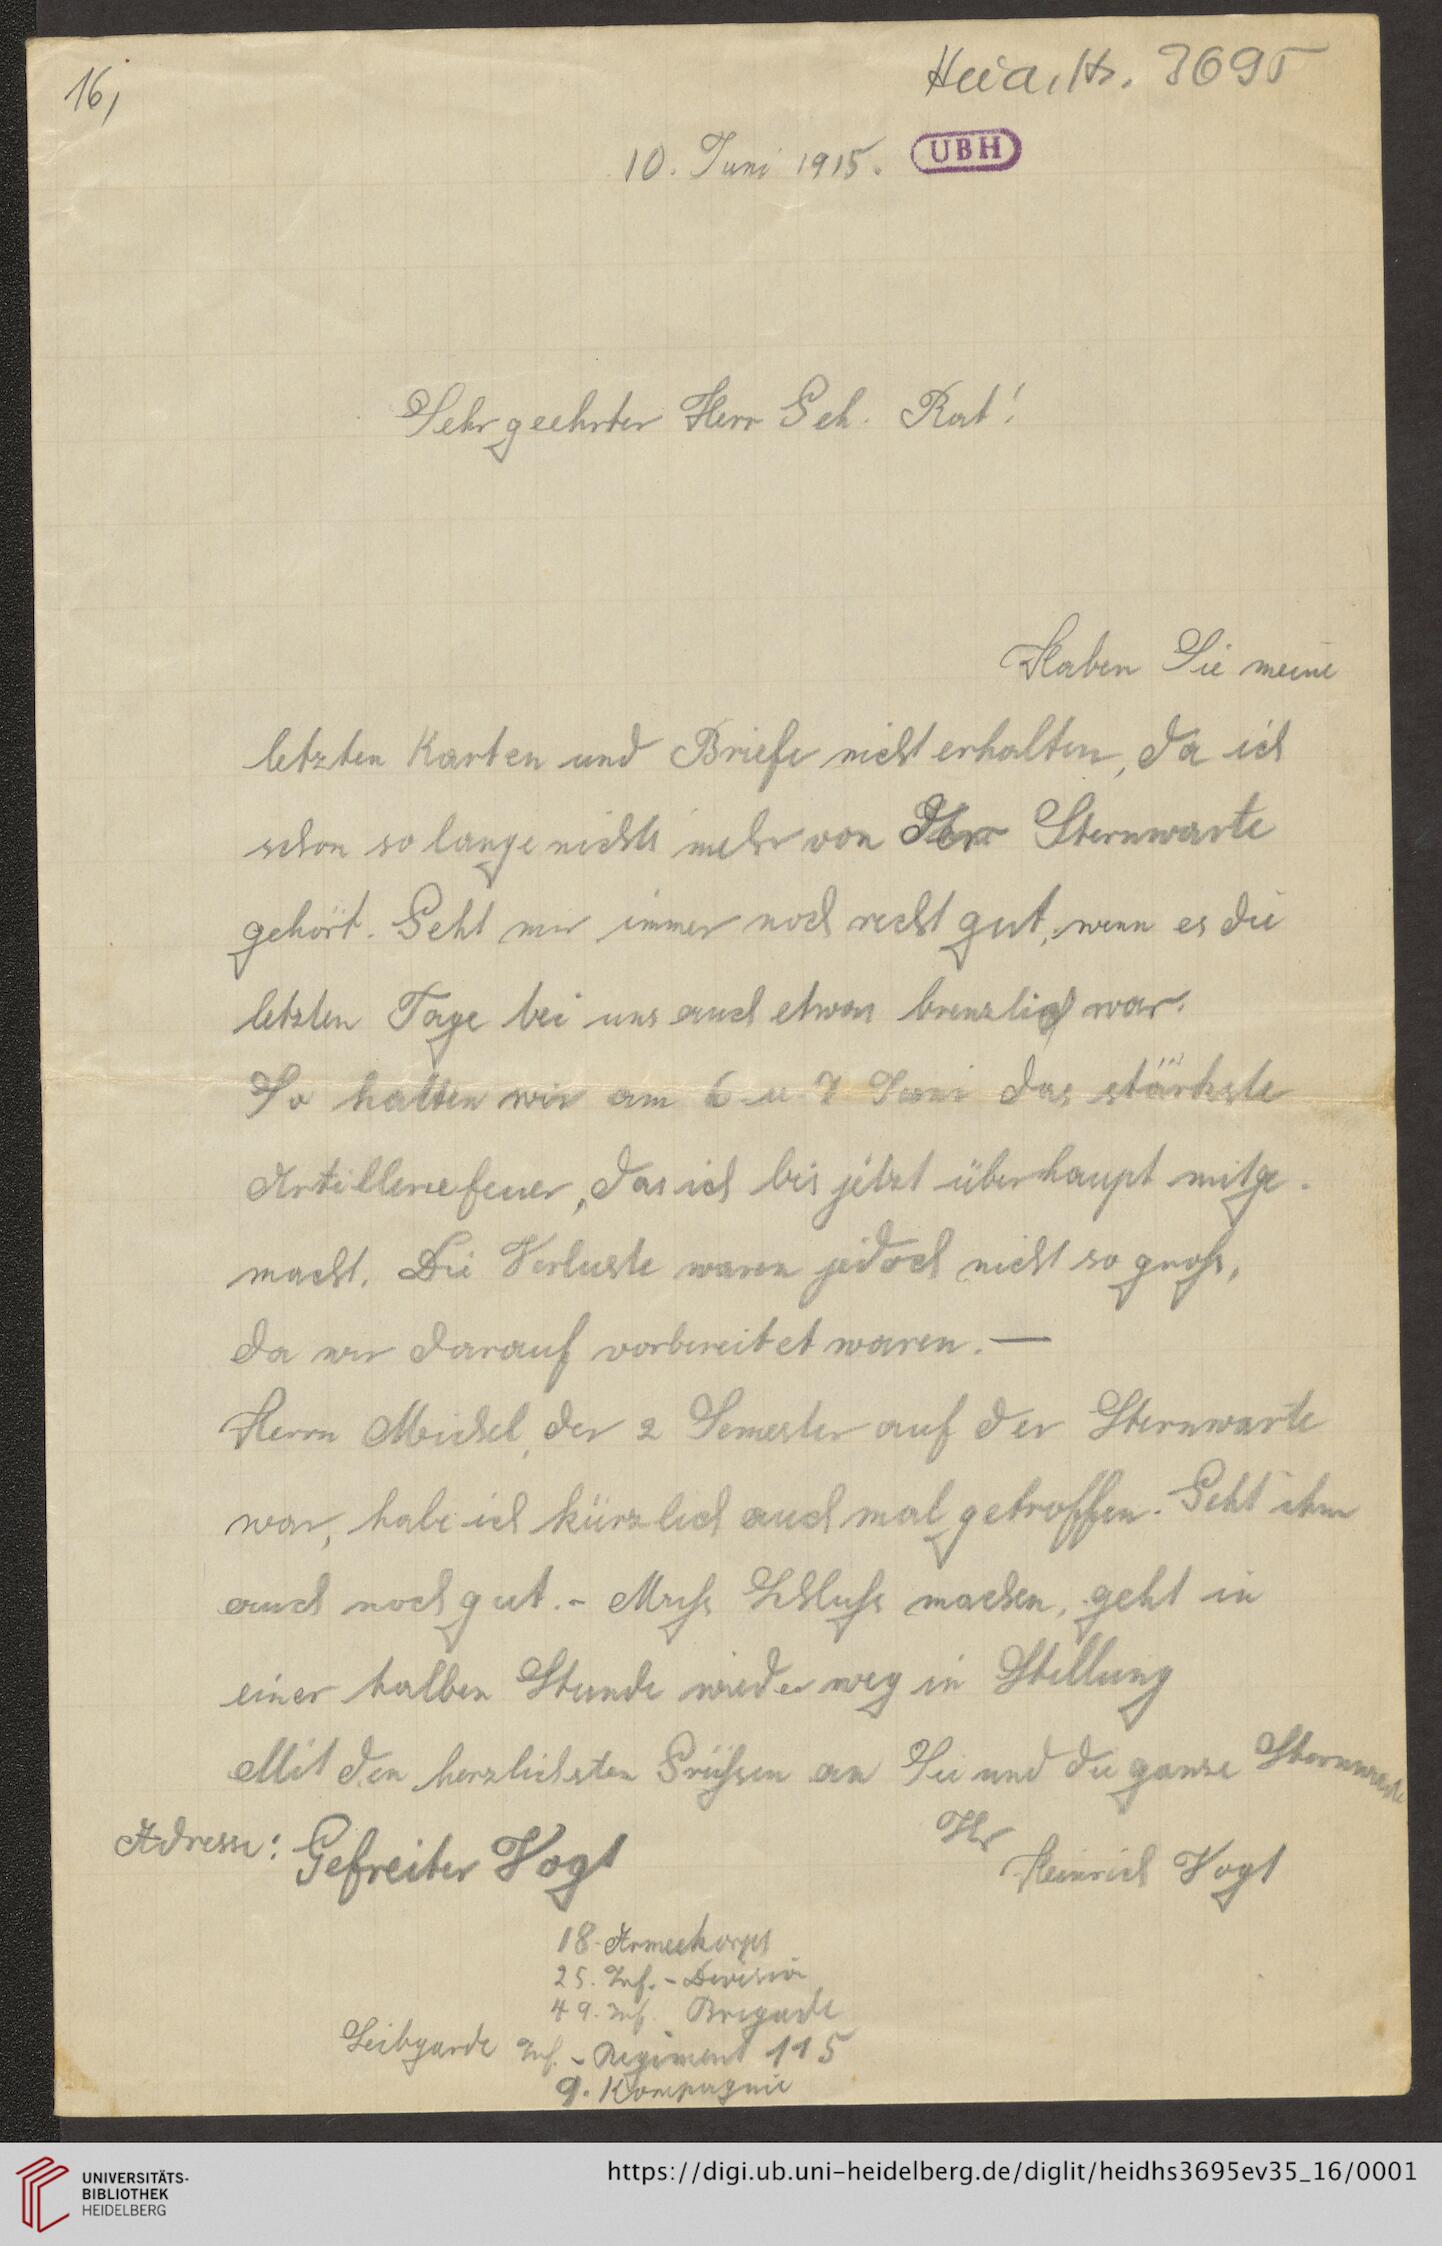 16,
Heid. Hs. 3695
10. Juni 1915.
UBH
Sehr geehrter Herr Geh. Rat!
Haben Sie meine
letzten Karten und Briefe nicht erhalten, da ich
schon so lange nichts mehr von der Sternwarte
gehört. Geht mir immer noch recht gut, wenn es die
letzten Tage bei uns auch etwas brenzlich war.
So hatten wir am 6. u. 7 Juni das stärkste
Artilleriefeuer, das ich bis jetzt überhaupt mitge-
macht. Die Verluste waren jedoch nicht so groß,
da wir darauf vorbereitet waren. —
Herrn Meichsel, der 2 Semester auf der Sternwarte
war, habe ich kürzlich auch mal getroffen. Geht ihm
auch noch gut. - Muß Schluß machen, geht in
einer halben Stunde wieder weg in Stellung
Mit den herzlichsten Grüßen an Sie und die ganze Sternwarte
Ihr
Heinrich Vogt
Adresse: Gefreiter Vogt
18. Armeekorps
25. Inf. - Division
49. Inf. Brigade
Leibgarde Inf. - Regiment 115
9. Kompagnie
UNIVERSITÄTS-
BIBLIOTHEK
HEIDELBERG
https://digi.ub.uni-heidelberg.de/diglit/heidhs3695ev35_16/0001